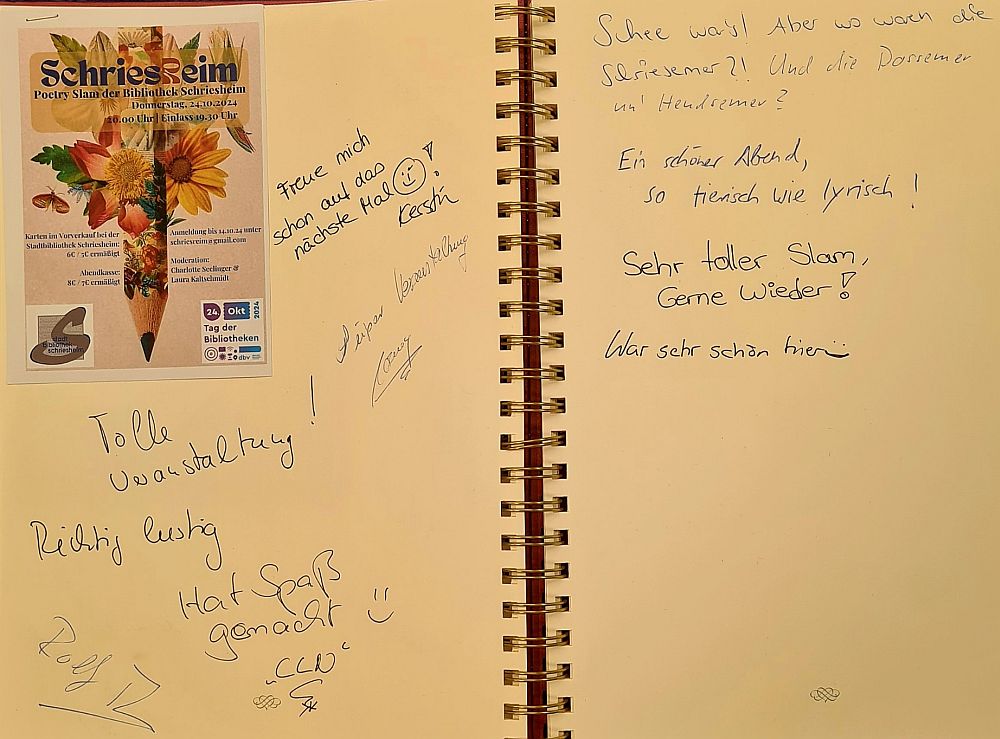 SchriesReim
Poetry Slam der Bibliothek Schriesheim
Donnerstag, 24.10.2024
20.00 Uhr | Einlass 19.30 Uhr
Karten im Vorverkauf bei der
Stadtbibliothek Schriesheim:
6€ / 5€ ermäßigt
Abendkasse:
8€ / 7€ ermäßigt
Anmeldung bis 14.10.24 unter
schriesreim@gmail.com
Moderation:
Charlotte Seelinger &
Laura Kaltschmidt
Stadt
Bibliothek
schriesheim
24. Okt 2024
Tag der
Bibliotheken
dbv
Freue mich
schon auf das
nächste Mal!
Kerstin
Super Veranstaltung
Tolle
Veranstaltung!
Richtig lustig
Hat Spaß
gemacht
"CLN"
Rolf
Schee war's! Aber wo waren die
Schriesemer?! Und die Dossemer
un' Hendsemer?
Ein schöner Abend,
so tierisch wie lyrisch!
Sehr toller Slam,
Gerne Wieder!
War sehr schön hier